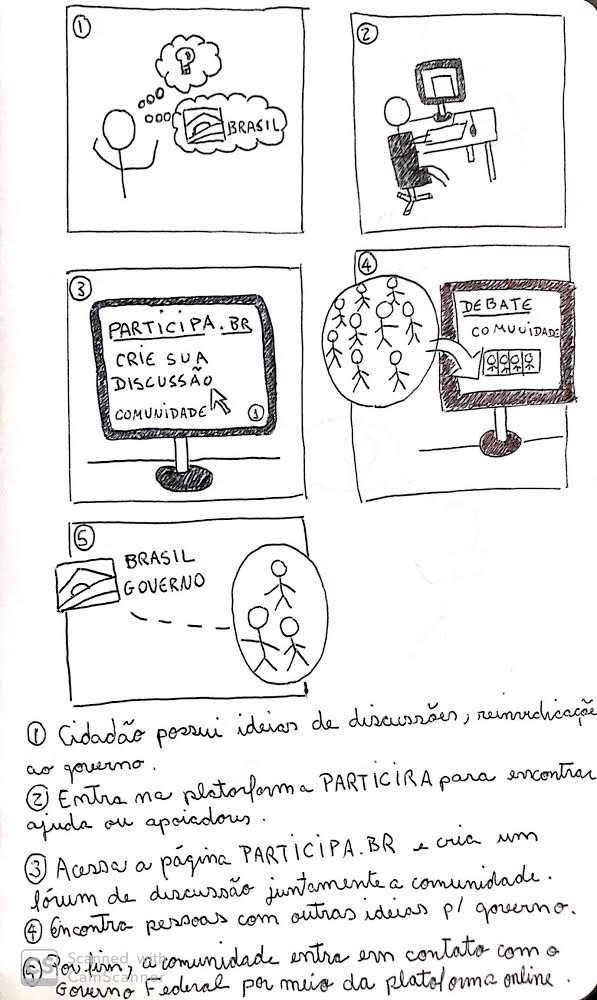 ①
?
BRASIL
②
③
PARTICIPA.BR
CRIE SUA
DISCUSSÃO
COMUNIDADE ①
④
DEBATE
COMUNIDADE
⑤
BRASIL
GOVERNO
① Cidadão possui ideias de discussões, reinvidicaçõe
ao governo.
② Entra na plataforma PARTICIRA para encontrar
ajuda ou apoiadores.
③ Acessa a página PARTICIPA.BR e cria um
fórum de discussão juntamente a comunidade.
④ Encontra pessoas com outras ideias p/ governo.
⑤ Por fim, a comunidade entra em contato com o
Governo Federal por meio da plataforma online.
CS Scanned with
CamScanner